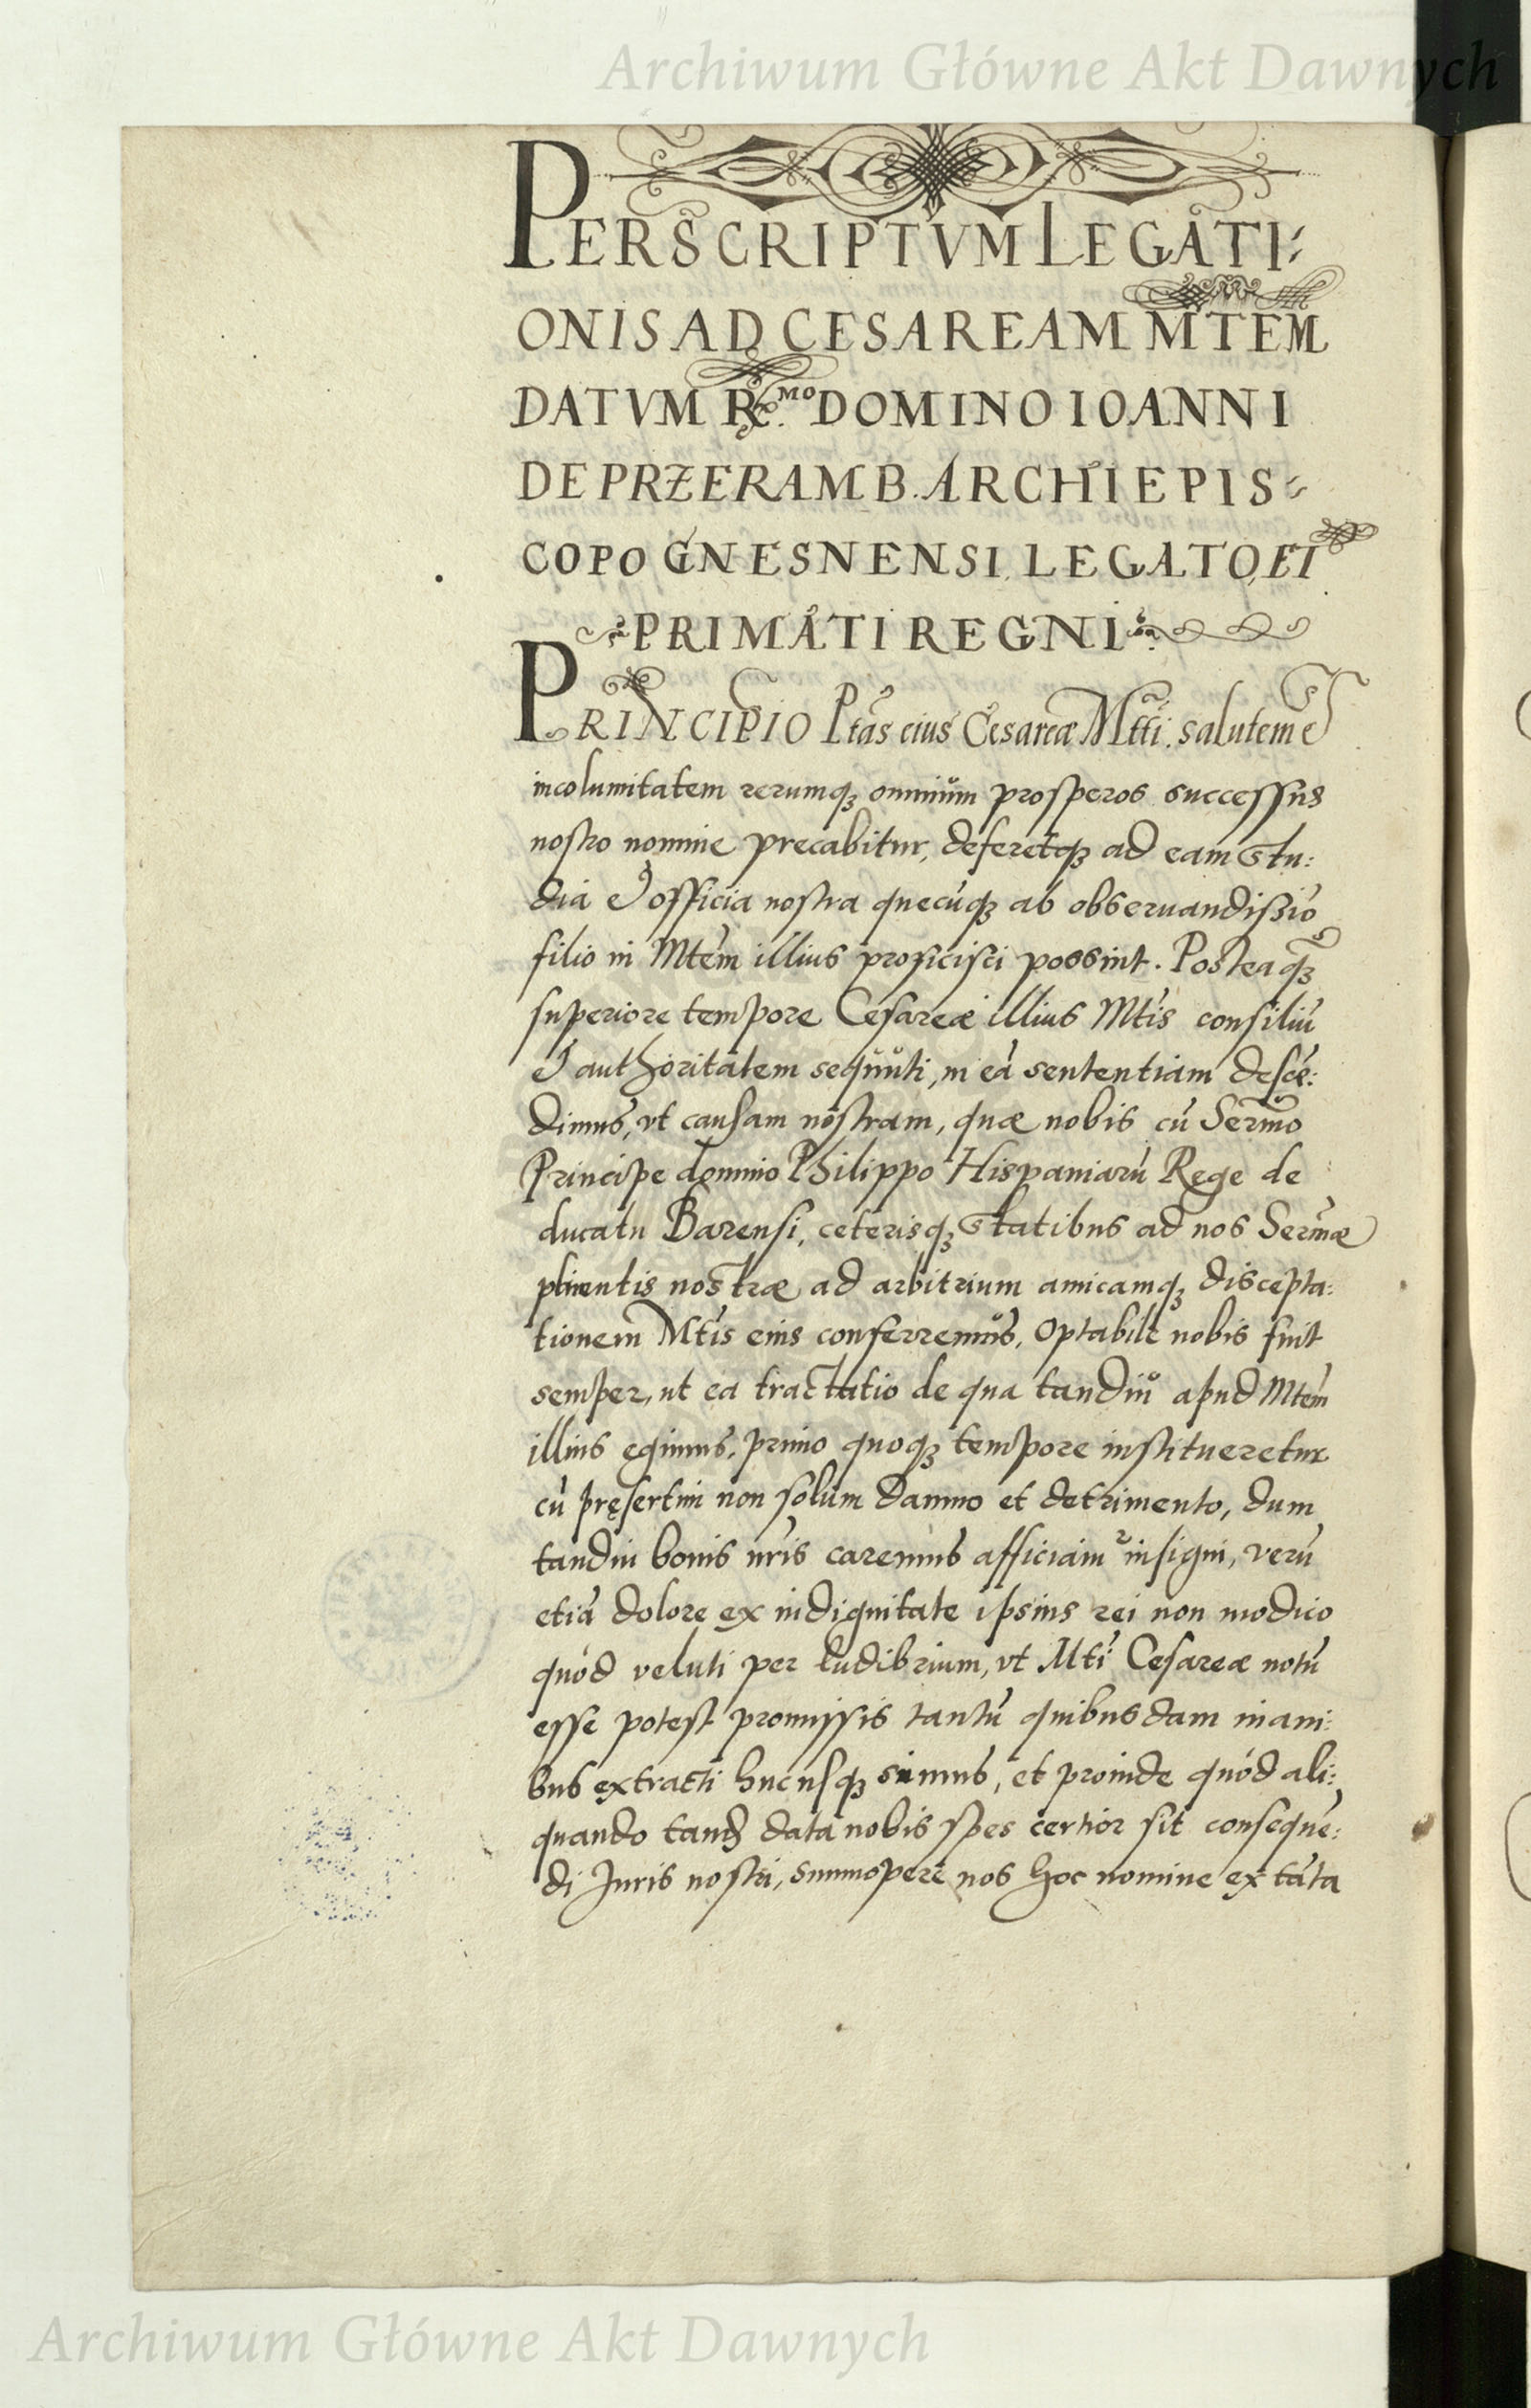 Archiwum Główne Akt Dawnych
PERSCRIPTVM LEGATI:
ONIS AD CESAREAM MTEM
DATVM R.MO DOMINO IOANNI
DE PRZERAMB. ARCHIEPIS:
COPO GNESNENSI LEGATO ET
PRIMATI REGNI
PRINCIPIO Ptas eius Cesareæ Mtti. salutem et
incolumitatem rerumq3 omnium prosperos successus
nostro nomine precabitur, deferetq3 ad eam stu:
dia et officia nostra quecuq3 ab obseruandissio
filio in Mtem illius proficisci possint. Posteaq3
superiore tempore Cesareæ illius Mtis consiliū
et authoritatem sequuti, in eā sententiam descē:
dimus, vt causam nostram, quæ nobis cū Sermo
Principe domino Philippo Hispaniarū Rege de
ducatu Barensi, ceterisq3 statibus ad nos Sermæ
ptinentis nostræ ad arbitrium amicamq3 discepta:
tionem Mtis eius conferremus. Optabile nobis fuit
semper, ut ea tractatio de qua tandiu apud Mtem
illius egimus, primo quoq3 tempore institueretur
cū pręsertim non solum damno et detrimento, dum
tandiu bonis nris caremus afficiamr insigni, verū
etiā dolore ex indignitate ipsius rei non modico
quód veluti per ludibrium, vt Mti Cesareæ notū
esse potest promissis tantū quibusdam inani:
bus extracti hucusq3 simus, et proinde quód ali:
quando tand3 data nobis spes certior sit consequē:
di Juris nostri, summopere nos hoc nomine ex tāta
Archiwum Główne Akt Dawnych